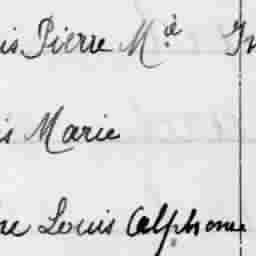 is Pierre Mie
is Marie
ne Louis Alphonse